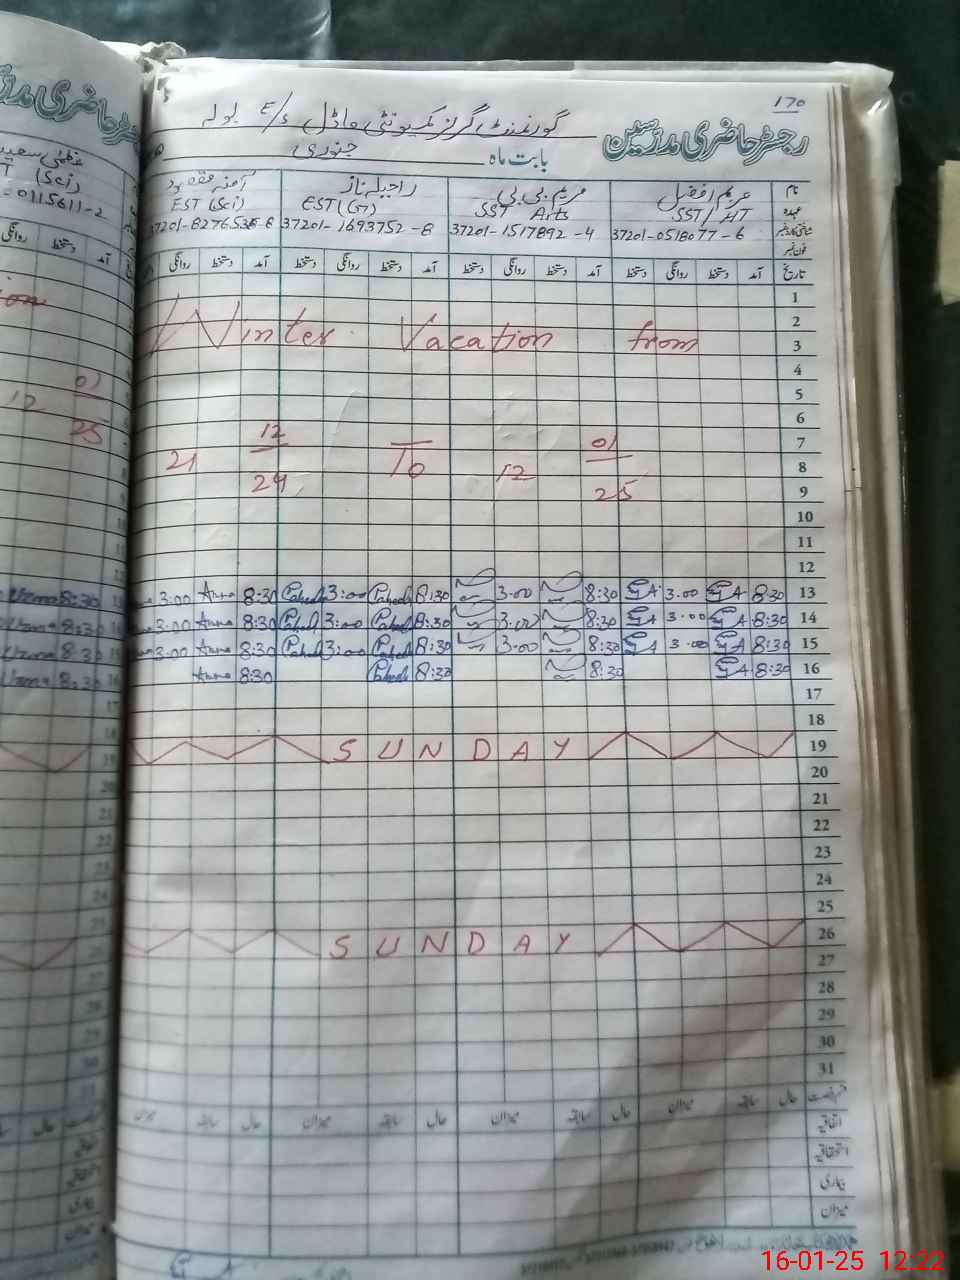 170
گورنمنٹ گرلز کمیونٹی ماڈل E/S بولہ
رجسٹر حاضری مدرسین
بابت ماہ جنوری
نام
عہدہ
شناختی کارڈ نمبر
فون نمبر
مریم افضل
SST/HT
37201-0518077-6
مریم بی بی
SST Arts
37201-1517892-4
راحیلہ ناز
EST(G)
37201-1693752-8
آمنہ مقصود
EST (Sci)
37201-8276536-8
(Sci)
0115611-2
تاریخ آمد دستخط روانگی دستخط آمد دستخط روانگی دستخط آمد دستخط روانگی دستخط آمد دستخط روانگی
1
2
3
Winter Vacation from
4
5
6
7
8
9
21 12/24 To 12 01/25
10
11
12
13 8:30 GA 3.00 GA 8:30 3.00 8:30 3:00 8:30 Amna 3.00
14 8:30 GA 3.00 GA 8:30 3.00 8:30 3:00 8:30 Amna 3.00
15 8:30 GA 3.00 GA 8:30 3.00 8:30 3:00 8:30 Amna 3.00
16 8:30 GA 8:30 8:30 8:30 Amna
17
18
19
SUNDAY
20
21
22
23
24
25
26
SUNDAY
27
28
29
30
31
حال سابقہ میزان حال سابقہ میزان حال سابقہ میزان حال سابقہ میزان
اتفاقیہ
استحقاقیہ
بیماری
میزان
16-01-25 12:22